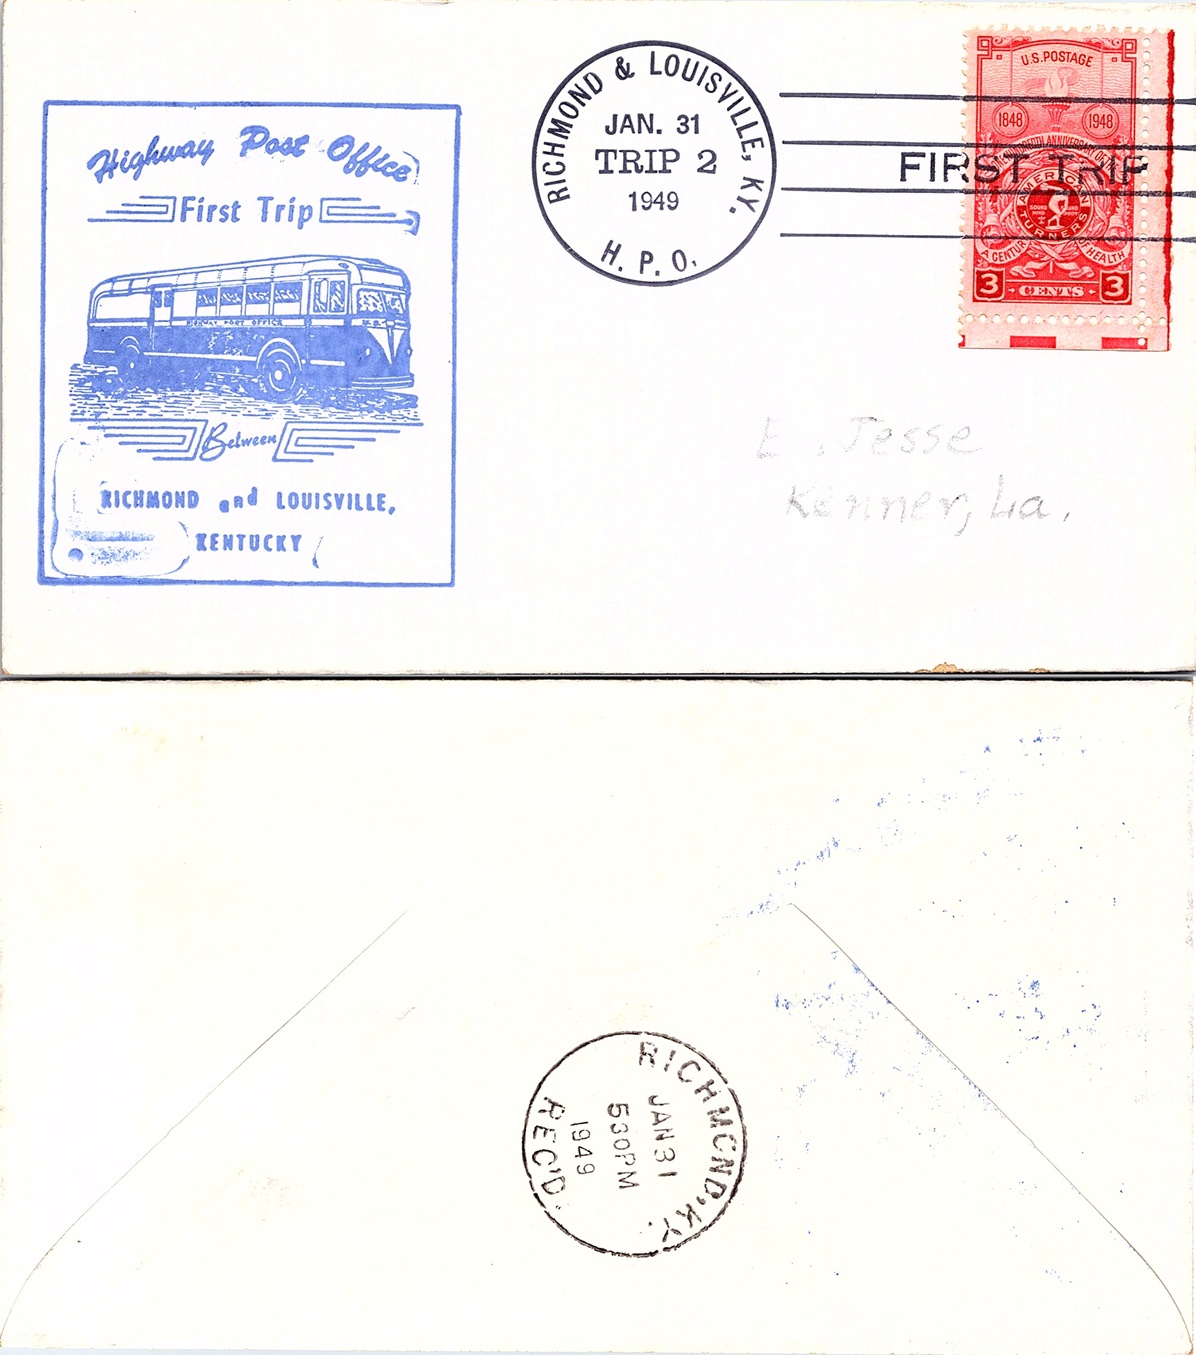 Highway Post Office
First Trip
HIGHWAY POST OFFICE
Between
RICHMOND and LOUISVILLE,
KENTUCKY
RICHMOND & LOUISVILLE, KY.
JAN. 31
TRIP 2
1949
H. P. O.
FIRST TRIP
U.S. POSTAGE
1848 1948
AMERICAN
TURNERS
A CENTURY OF HEALTH
3 CENTS 3
E. Jesse
Kenner, La.
RICHMOND, KY.
JAN 31
530PM
1949
REC'D.